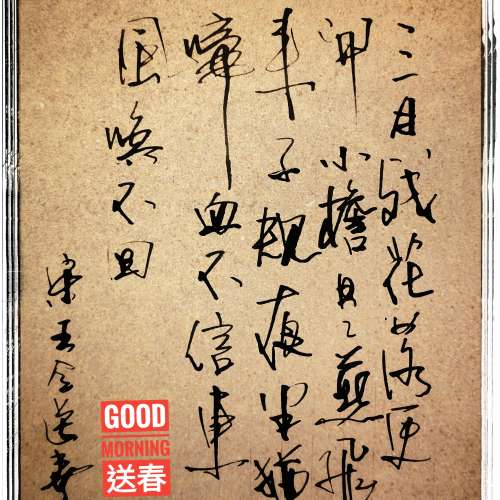 三月残花落更
開小檐日日燕飛
来子規夜半猶
啼血不信東
風喚不回
宋王令送春
GOOD
MORNING
送春